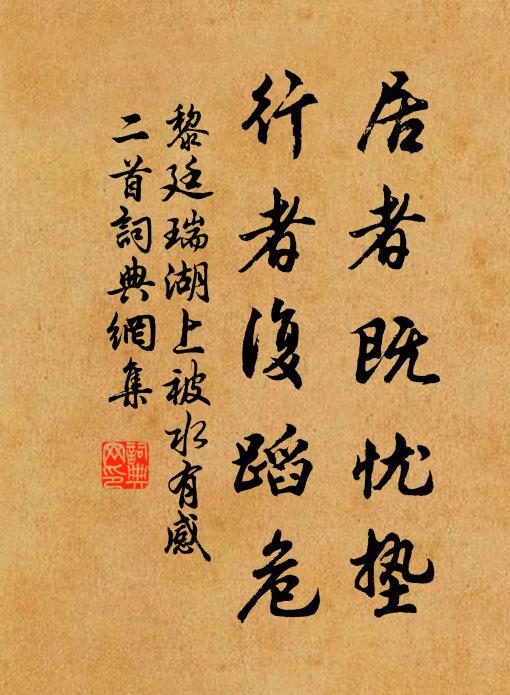 居者既忧垫
行者復蹈危
黎廷瑞湖上被水有感
二首詞典網集
詞典
网印